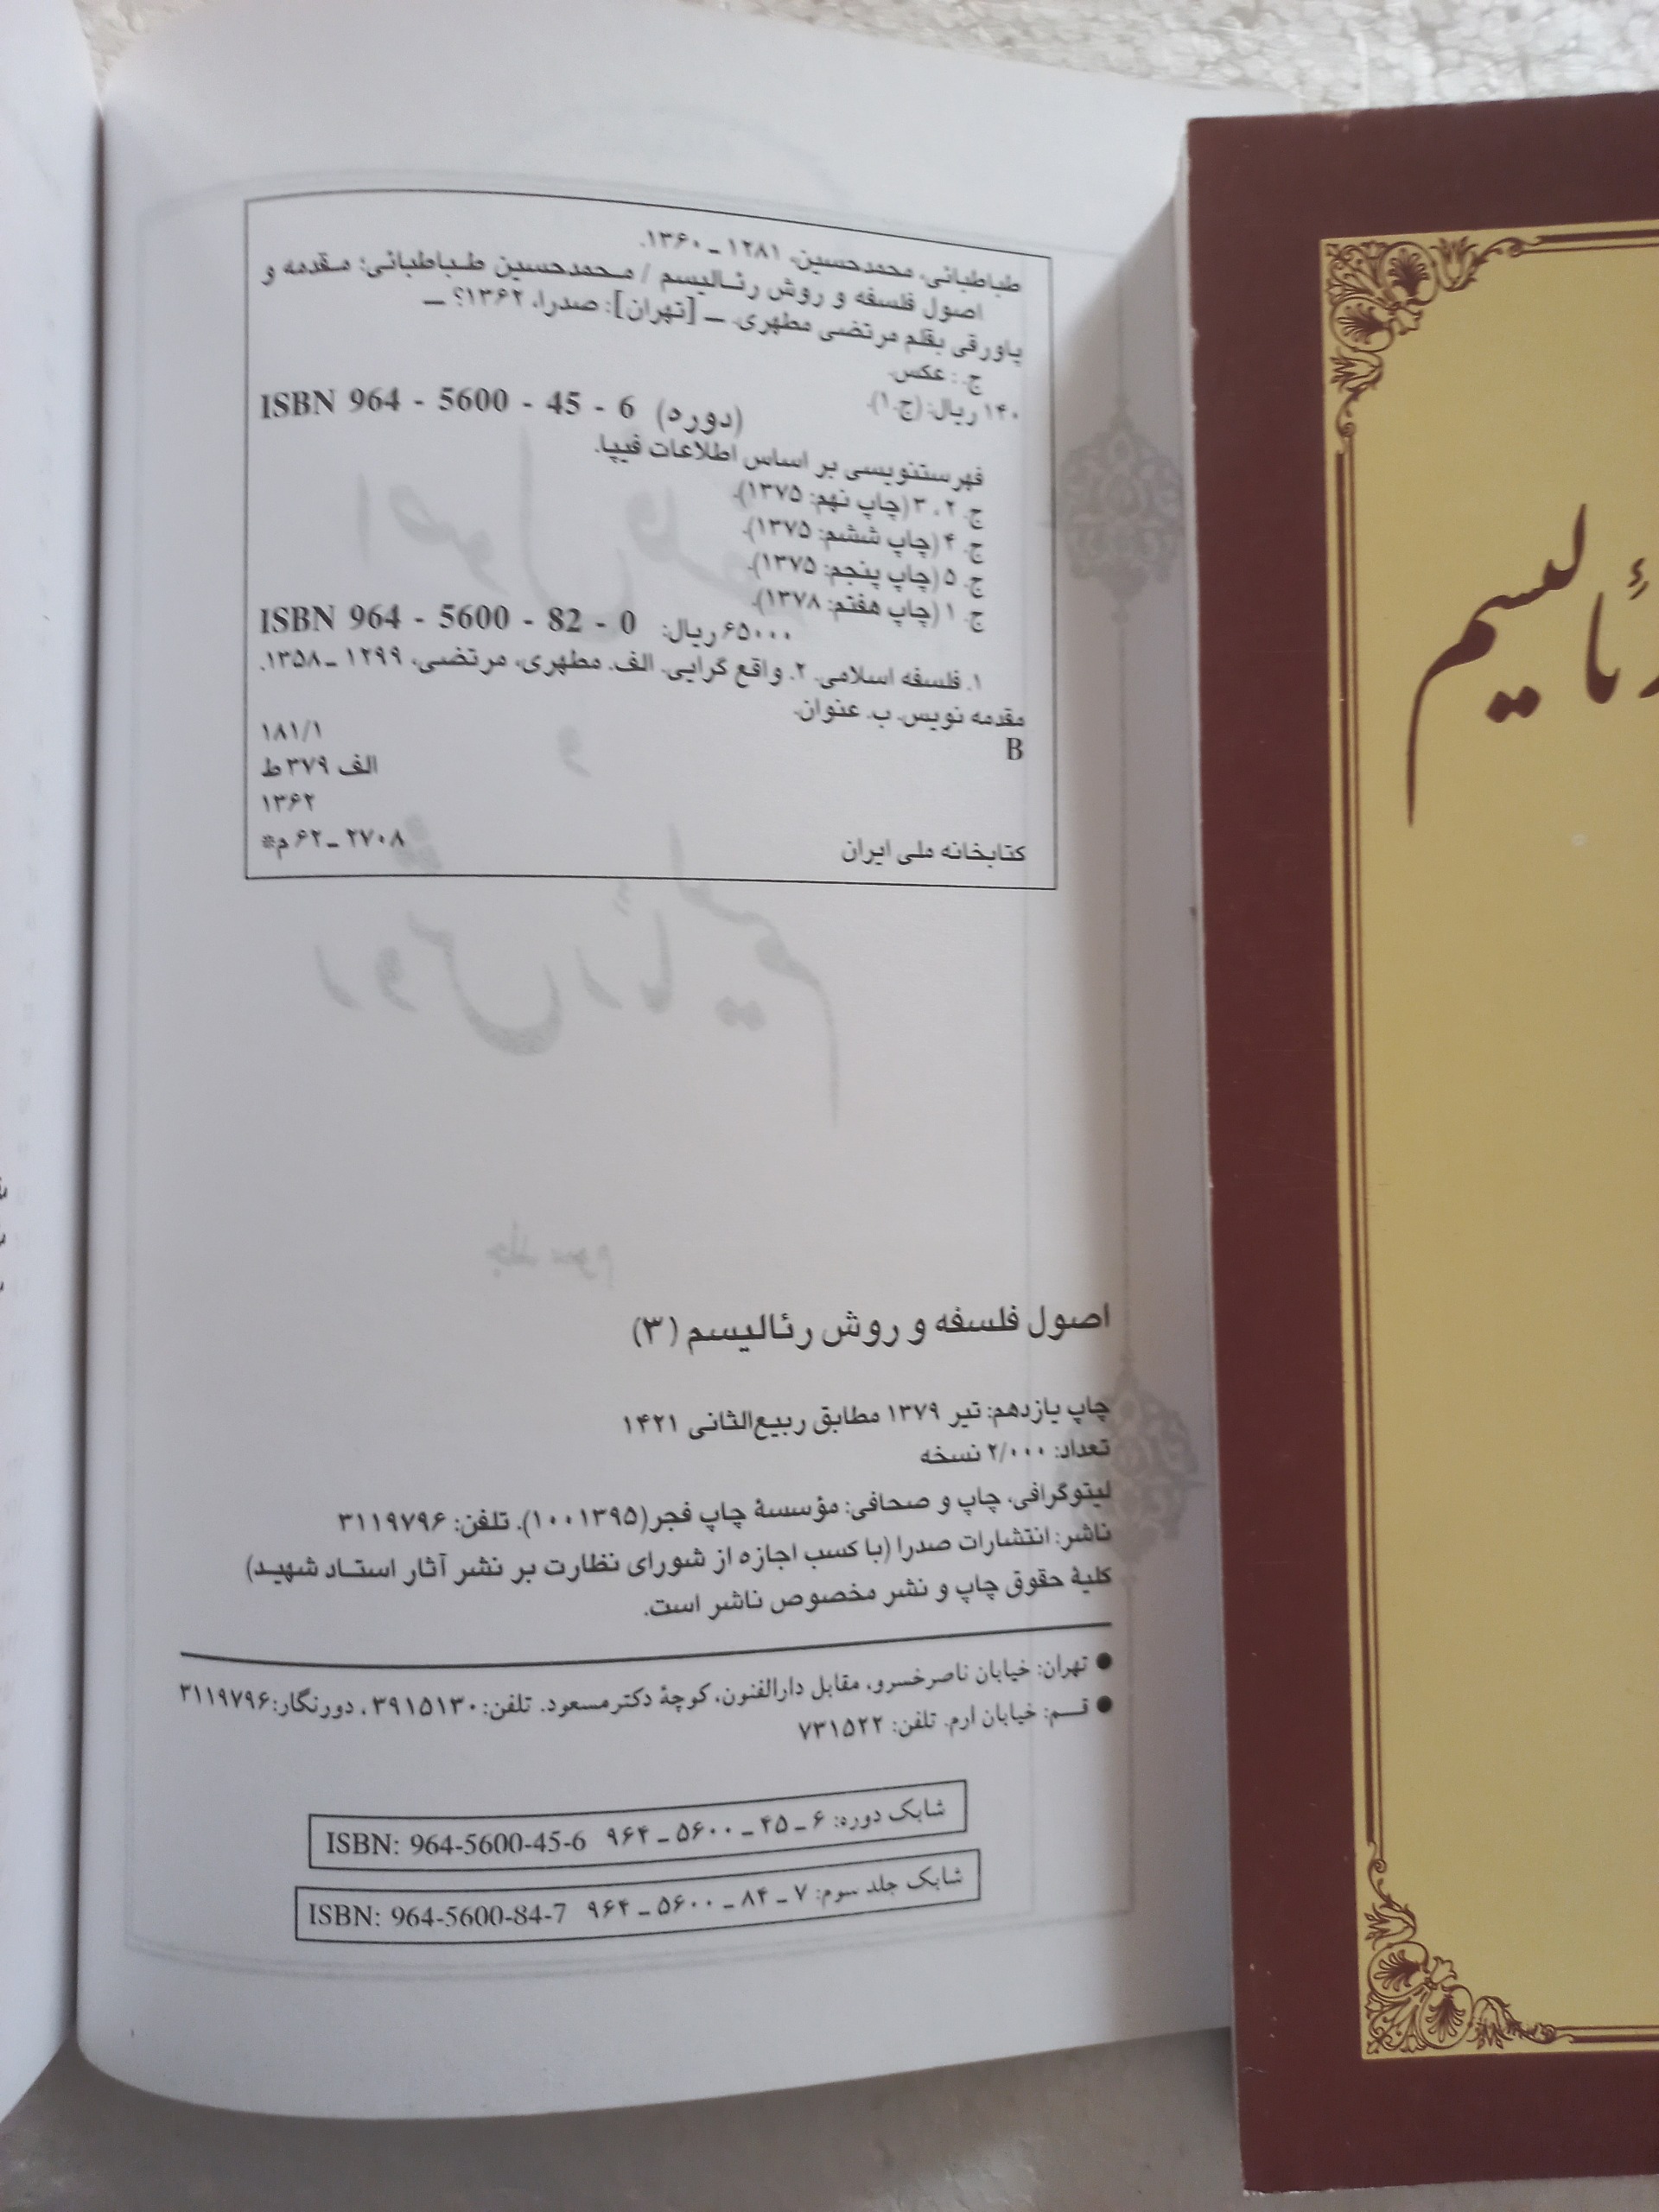 طباطبائی، محمدحسین، ۱۲۸۱ ـ ۱۳۶۰.
اصول فلسفه و روش رئالیسم / محمدحسین طباطبائی؛ مقدمه و
پاورقی بقلم مرتضی مطهری. ــ [تهران]: صدرا، ۱۳۶۲؟ ــ
ج. : عکس.
۱۴۰ ریال: (ج.۱). (دوره) ISBN 964 - 5600 - 45 - 6
فهرستنویسی بر اساس اطلاعات فیپا.
ج. ۲ ، ۳ (چاپ نهم: ۱۳۷۵).
ج. ۴ (چاپ ششم: ۱۳۷۵).
ج. ۵ (چاپ پنجم: ۱۳۷۵).
ج. ۱ (چاپ هفتم: ۱۳۷۸).
۶۵۰۰۰ ریال: ISBN 964 - 5600 - 82 - 0
۱. فلسفه اسلامی. ۲. واقع گرایی. الف. مطهری، مرتضی، ۱۲۹۹ ـ ۱۳۵۸.
مقدمه نویس. ب. عنوان.
۱۸۱/۱
B
الف ۳۷۹ ط
۱۳۶۲
کتابخانه ملی ایران
۲۷۰۸ ـ ۶۲ م*
اصول فلسفه و روش رئالیسم (۳)
چاپ یازدهم: تیر ۱۳۷۹ مطابق ربیع‌الثانی ۱۴۲۱
تعداد: ۲/۰۰۰ نسخه
لیتوگرافی، چاپ و صحافی: مؤسسهٔ چاپ فجر(۱۰۰۱۳۹۵). تلفن: ۳۱۱۹۷۹۶
ناشر: انتشارات صدرا (با کسب اجازه از شورای نظارت بر نشر آثار استاد شهید)
کلیهٔ حقوق چاپ و نشر مخصوص ناشر است.
● تهران: خیابان ناصرخسرو، مقابل دارالفنون، کوچهٔ دکترمسعود. تلفن: ۳۹۱۵۱۳۰ ، دورنگار: ۳۱۱۹۷۹۶
● قم: خیابان ارم. تلفن: ۷۳۱۵۲۲
شابک دوره: ۶ ـ ۴۵ ـ ۵۶۰۰ ـ ۹۶۴ ISBN: 964-5600-45-6
شابک جلد سوم: ۷ ـ ۸۴ ـ ۵۶۰۰ ـ ۹۶۴ ISBN: 964-5600-84-7
رئالیسم